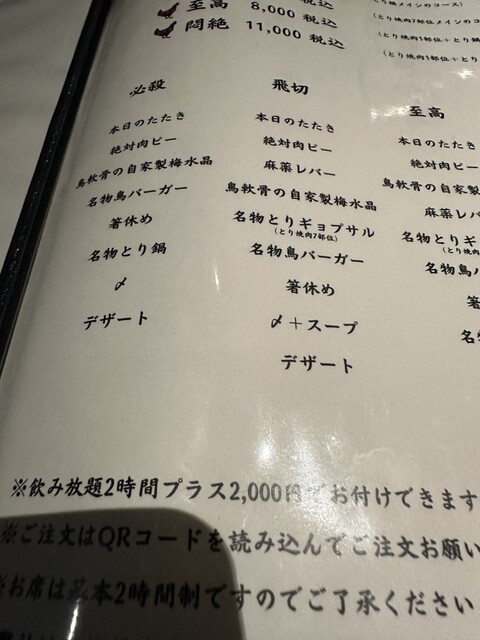 税込
至高 8,000 税込
悶絶 11,000 税込
(とり焼肉7部位メインのコ
(とり焼肉1部位+とり鍋
(とり焼肉1部位+とり
必殺
本日のたたき
絶対肉ビー
鳥軟骨の自家製梅水晶
名物鳥バーガー
箸休め
名物とり鍋
〆
デザート
飛切
本日のたたき
絶対肉ビー
麻薬レバー
鳥軟骨の自家製梅水晶
名物とりギョプサル
(とり焼肉7部位)
名物鳥バーガー
箸休め
〆+スープ
デザート
至高
本日のたたき
絶対肉ビー
鳥軟骨の自家製
麻薬レバ
名物とりギ
(とり焼肉
名物鳥バ
箸
名
※飲み放題2時間プラス2,000円でお付けできます
※ご注文はQRコードを読み込んでご注文お願い
※お席は基本2時間制ですのでご了承ください